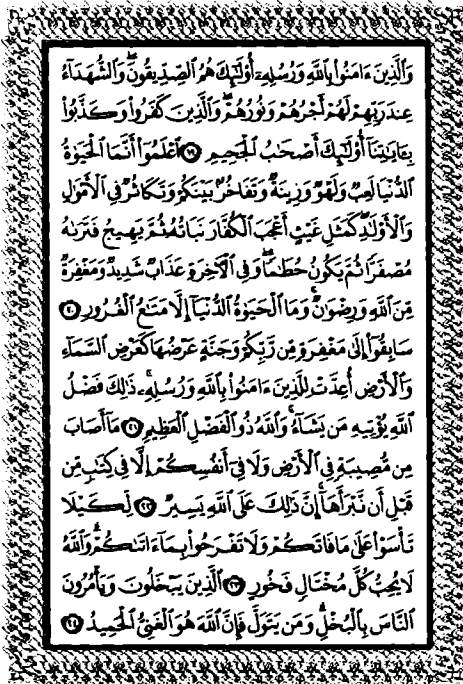 وَالَّذِينَ ءَامَنُوا بِاللَّهِ وَرُسُلِهِ أُولَٰئِكَ هُمُ الصِّدِّيقُونَ وَالشُّهَدَاءُ
عِندَ رَبِّهِمْ لَهُمْ أَجْرُهُمْ وَنُورُهُمْ وَالَّذِينَ كَفَرُوا وَكَذَّبُوا
بِـَٔايَٰتِنَا أُولَٰئِكَ أَصْحَٰبُ الْجَحِيمِ ١٩ اعْلَمُوا أَنَّمَا الْحَيَوٰةُ
الدُّنْيَا لَعِبٌ وَلَهْوٌ وَزِينَةٌ وَتَفَاخُرٌ بَيْنَكُمْ وَتَكَاثُرٌ فِي الْأَمْوَٰلِ
وَالْأَوْلَٰدِ كَمَثَلِ غَيْثٍ أَعْجَبَ الْكُفَّارَ نَبَاتُهُ ثُمَّ يَهِيجُ فَتَرَىٰهُ
مُصْفَرًّا ثُمَّ يَكُونُ حُطَٰمًا وَفِي الْآخِرَةِ عَذَابٌ شَدِيدٌ وَمَغْفِرَةٌ
مِّنَ اللَّهِ وَرِضْوَٰنٌ وَمَا الْحَيَوٰةُ الدُّنْيَا إِلَّا مَتَٰعُ الْغُرُورِ ٢٠
سَابِقُوا إِلَىٰ مَغْفِرَةٍ مِّن رَّبِّكُمْ وَجَنَّةٍ عَرْضُهَا كَعَرْضِ السَّمَاءِ
وَالْأَرْضِ أُعِدَّتْ لِلَّذِينَ ءَامَنُوا بِاللَّهِ وَرُسُلِهِ ذَٰلِكَ فَضْلُ
اللَّهِ يُؤْتِيهِ مَن يَشَاءُ وَاللَّهُ ذُو الْفَضْلِ الْعَظِيمِ ٢١ مَا أَصَابَ
مِن مُّصِيبَةٍ فِي الْأَرْضِ وَلَا فِي أَنفُسِكُمْ إِلَّا فِي كِتَٰبٍ مِّن
قَبْلِ أَن نَّبْرَأَهَا إِنَّ ذَٰلِكَ عَلَى اللَّهِ يَسِيرٌ ٢٢ لِّكَيْلَا
تَأْسَوْا عَلَىٰ مَا فَاتَكُمْ وَلَا تَفْرَحُوا بِمَا ءَاتَىٰكُمْ وَاللَّهُ
لَا يُحِبُّ كُلَّ مُخْتَالٍ فَخُورٍ ٢٣ الَّذِينَ يَبْخَلُونَ وَيَأْمُرُونَ
النَّاسَ بِالْبُخْلِ وَمَن يَتَوَلَّ فَإِنَّ اللَّهَ هُوَ الْغَنِيُّ الْحَمِيدُ ٢٤